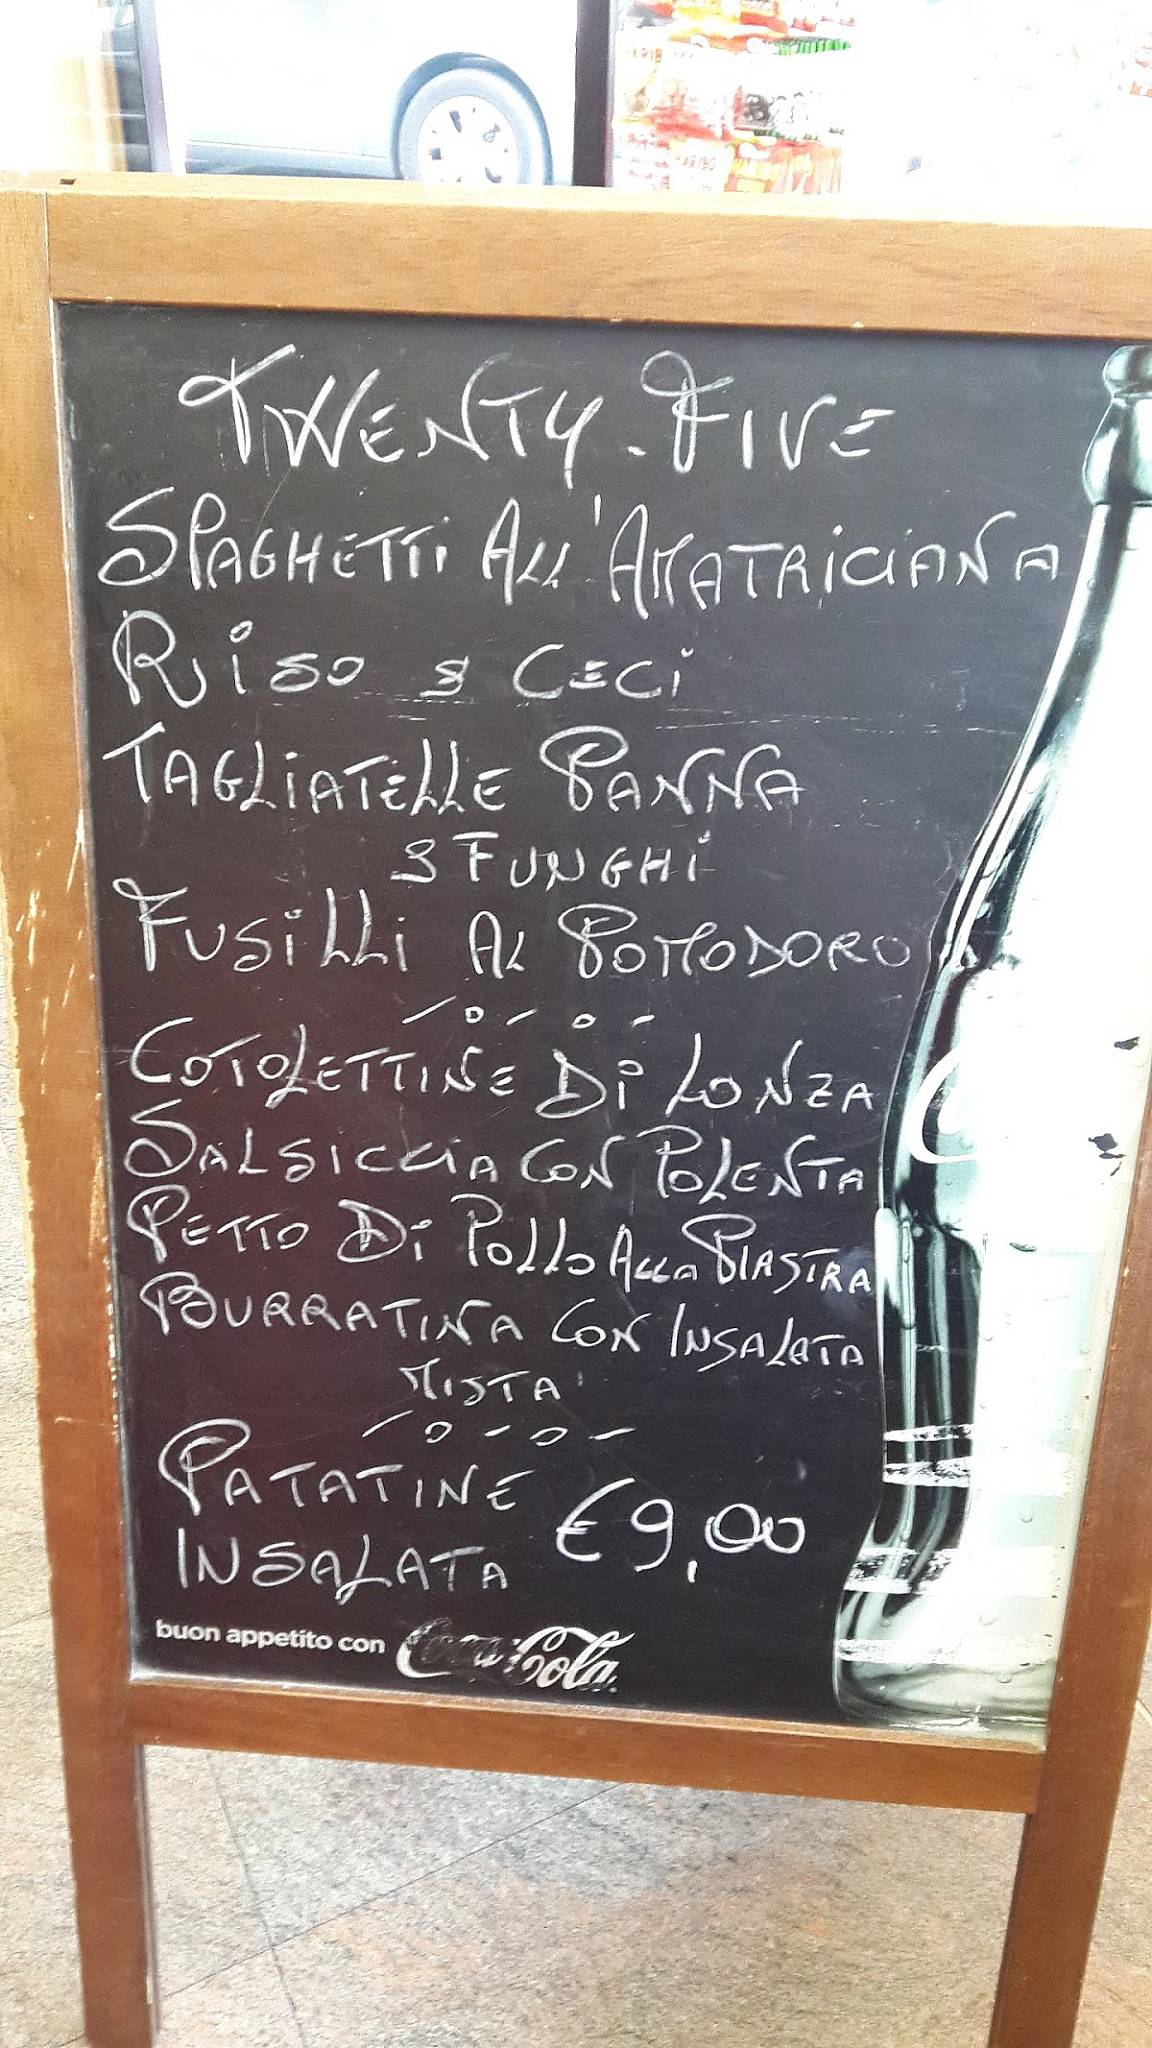 TWENTY-FIVE
SPAGHETTI ALL'AMATRICIANA
RISO & CECI
TAGLIATELLE PANNA
& FUNGHI
FUSILLI AL POMODORO
COTOLETTINE DI LONZA
SALSICCIA CON POLENTA
PETTO DI POLLO ALLA PIASTRA
BURRATINA CON INSALATA
MISTA
PATATINE
INSALATA
€ 9,00
buon appetito con Coca-Cola